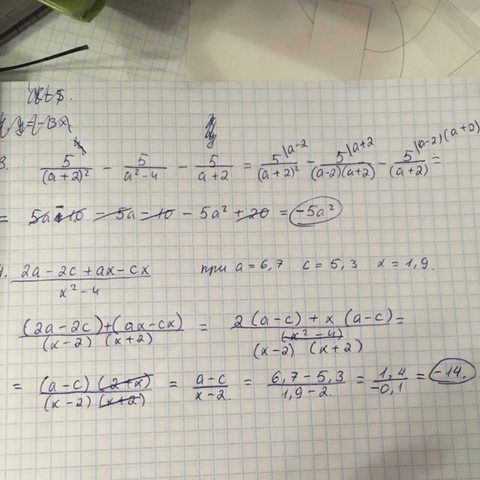 y = -3x
3. 5/(a+2)² - 5/(a²-4) - 5/(a+2) = 5|a-2/(a+2)² - 5|a+2/((a-2)(a+2)) - 5|(a-2)(a+2)/(a+2) =
= 5a - 10 - 5a - 10 - 5a² + 20 = -5a²
4. (2a-2c+ax-cx)/(x²-4) при a=6,7 c=5,3 x=1,9.
((2a-2c)+(ax-cx))/((x-2)(x+2)) = (2(a-c)+x(a-c))/((x²-4) (x-2)(x+2)) =
= ((a-c)(2+x))/((x-2)(x+2)) = (a-c)/(x-2) = (6,7-5,3)/(1,9-2) = 1,4/-0,1 = -14.